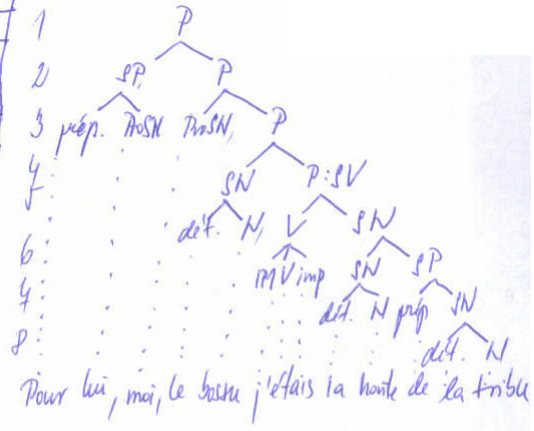 1 P
2 SP, P
3 prép. ProSN ProSN, P
4
5 SN P:SV
dét. N, V SN
6 IMV imp SN SP
7 dét. N prép SN
8 dét. N
Pour lui, moi, le bossu j'étais la honte de la tribu